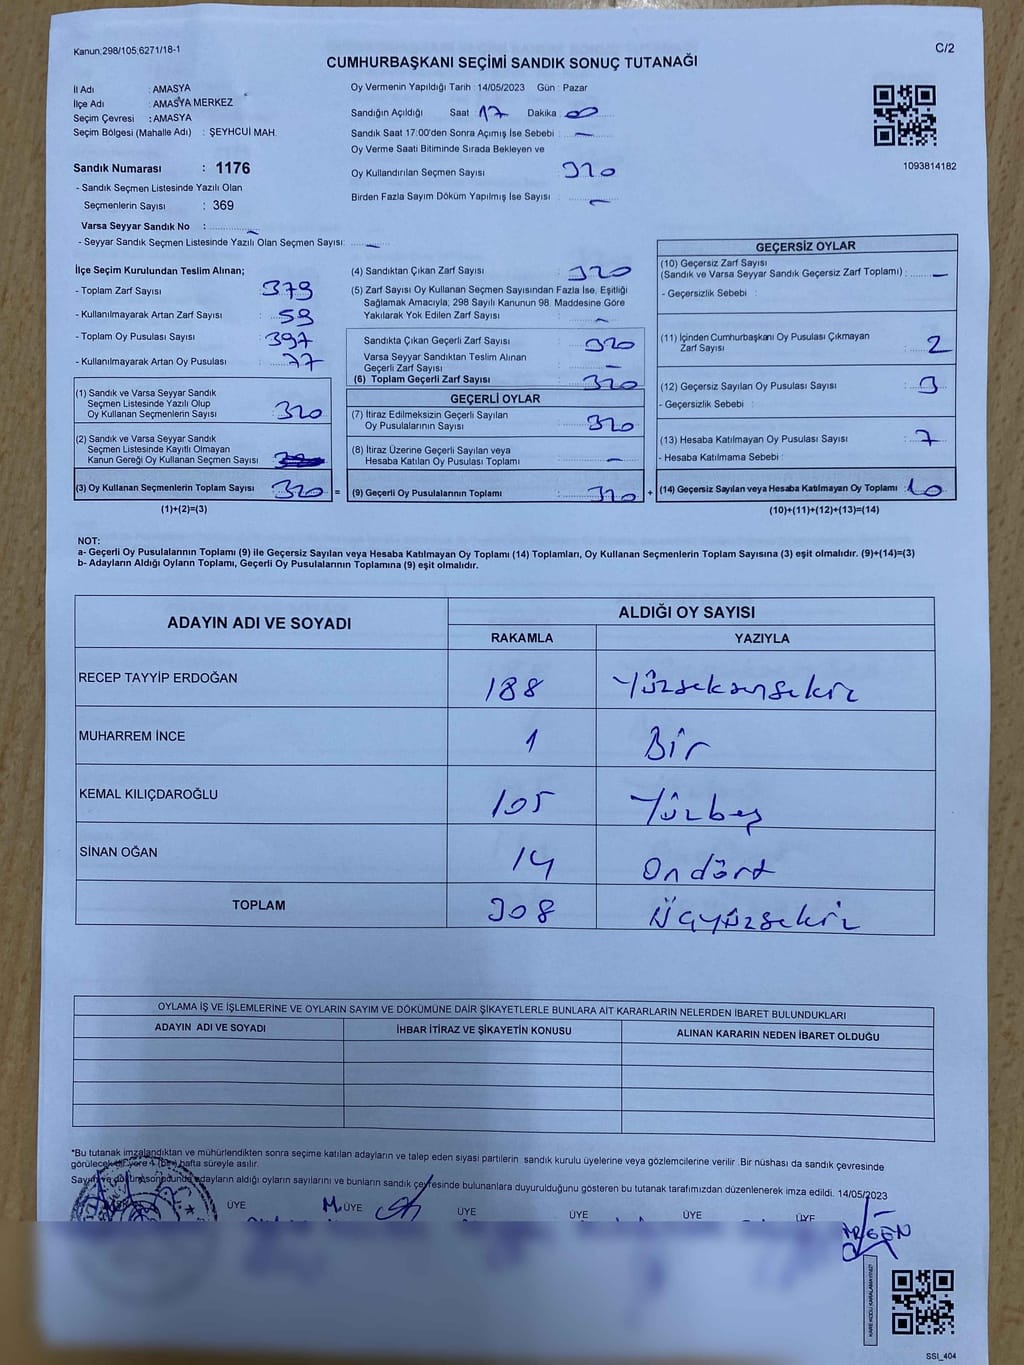 Kanun,298/105,6271/18-1
C/2
CUMHURBAŞKANI SEÇİMİ SANDIK SONUÇ TUTANAĞI
İl Adı : AMASYA
İlçe Adı : AMASYA MERKEZ
Seçim Çevresi : AMASYA
Seçim Bölgesi (Mahalle Adı) : ŞEYHCUİ MAH.
Sandık Numarası : 1176
- Sandık Seçmen Listesinde Yazılı Olan
Seçmenlerin Sayısı : 369
Varsa Seyyar Sandık No : —
- Seyyar Sandık Seçmen Listesinde Yazılı Olan Seçmen Sayısı: —
Oy Vermenin Yapıldığı Tarih : 14/05/2023 Gün : Pazar
Sandığın Açıldığı Saat 17 Dakika 00
Sandık Saat 17:00'den Sonra Açımış İse Sebebi : —
Oy Verme Saati Bitiminde Sırada Bekleyen ve
Oy Kullandırılan Seçmen Sayısı : 320
Birden Fazla Sayım Döküm Yapılmış İse Sayısı : —
1093814182
İlçe Seçim Kurulundan Teslim Alınan;
- Toplam Zarf Sayısı : 379
- Kullanılmayarak Artan Zarf Sayısı : 59
- Toplam Oy Pusulası Sayısı : 397
- Kullanılmayarak Artan Oy Pusulası : 77
(1) Sandık ve Varsa Seyyar Sandık
Seçmen Listesinde Yazılı Olup
Oy Kullanan Seçmenlerin Sayısı : 320
(2) Sandık ve Varsa Seyyar Sandık
Seçmen Listesinde Kayıtlı Olmayan
Kanun Gereği Oy Kullanan Seçmen Sayısı
(3) Oy Kullanan Seçmenlerin Toplam Sayısı : 320 =
(1)+(2)=(3)
(4) Sandıktan Çıkan Zarf Sayısı : 320
(5) Zarf Sayısı Oy Kullanan Seçmen Sayısından Fazla İse, Eşitliği
Sağlamak Amacıyla; 298 Sayılı Kanunun 98. Maddesine Göre
Yakılarak Yok Edilen Zarf Sayısı : —
Sandıkta Çıkan Geçerli Zarf Sayısı : 320
Varsa Seyyar Sandıktan Teslim Alınan
Geçerli Zarf Sayısı : —
(6) Toplam Geçerli Zarf Sayısı : 320
GEÇERLİ OYLAR
(7) İtiraz Edilmeksizin Geçerli Sayılan
Oy Pusulalarının Sayısı : 320
(8) İtiraz Üzerine Geçerli Sayılan veya
Hesaba Katılan Oy Pusulası Toplamı : —
(9) Geçerli Oy Pusulalarının Toplamı : 310 +
GEÇERSİZ OYLAR
(10) Geçersiz Zarf Sayısı
(Sandık ve Varsa Seyyar Sandık Geçersiz Zarf Toplamı) : —
- Geçersizlik Sebebi :
(11) İçinden Cumhurbaşkanı Oy Pusulası Çıkmayan
Zarf Sayısı : 2
(12) Geçersiz Sayılan Oy Pusulası Sayısı : 3
- Geçersizlik Sebebi :
(13) Hesaba Katılmayan Oy Pusulası Sayısı : 7
- Hesaba Katılmama Sebebi :
(14) Geçersiz Sayılan veya Hesaba Katılmayan Oy Toplamı : 10
(10)+(11)+(12)+(13)=(14)
NOT:
a- Geçerli Oy Pusulalarının Toplamı (9) ile Geçersiz Sayılan veya Hesaba Katılmayan Oy Toplamı (14) Toplamları, Oy Kullanan Seçmenlerin Toplam Sayısına (3) eşit olmalıdır. (9)+(14)=(3)
b- Adayların Aldığı Oyların Toplamı, Geçerli Oy Pusulalarının Toplamına (9) eşit olmalıdır.
ADAYIN ADI VE SOYADI
ALDIĞI OY SAYISI
RAKAMLA YAZIYLA
RECEP TAYYİP ERDOĞAN 188 Yüzseksensekiz
MUHARREM İNCE 1 Bir
KEMAL KILIÇDAROĞLU 105 Yüzbeş
SİNAN OĞAN 14 Ondört
TOPLAM 308 Üçyüzsekiz
OYLAMA İŞ VE İŞLEMLERİNE VE OYLARIN SAYIM VE DÖKÜMÜNE DAİR ŞİKAYETLERLE BUNLARA AİT KARARLARIN NELERDEN İBARET BULUNDUKLARI
ADAYIN ADI VE SOYADI İHBAR İTİRAZ VE ŞİKAYETİN KONUSU ALINAN KARARIN NEDEN İBARET OLDUĞU
*Bu tutanak imzalandıktan ve mühürlendikten sonra seçime katılan adayların ve talep eden siyasi partilerin sandık kurulu üyelerine veya gözlemcilerine verilir. Bir nüshası da sandık çevresinde
görülecek bir yere 1 (bir) hafta süreyle asılır.
Sayım ve döküm sonunda adayların aldığı oyların sayılarını ve bunların sandık çevresinde bulunanlara duyurulduğunu gösteren bu tutanak tarafımızdan düzenlenerek imza edildi. 14/05/2023
ÜYE M. ÜYE ÜYE ÜYE ÜYE ÜYE
KARE KODU KARALAMAYINIZ!
SSI_404